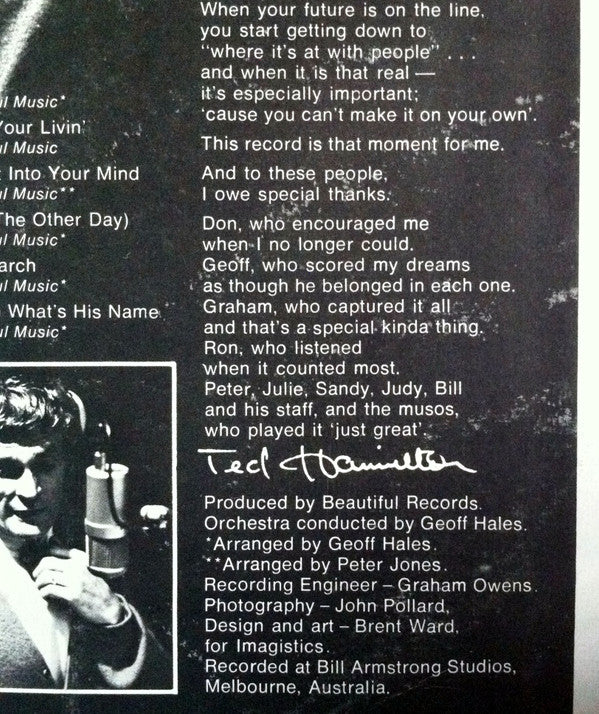 Music*
Your Livin'
Music
Into Your Mind
Music**
The Other Day)
Music*
Music*
What's His Name
Music*
When your future is on the line,
you start getting down to
"where it's at with people" . . .
and when it is that real —
it's especially important;
'cause you can't make it on your own'.
This record is that moment for me.
And to these people,
I owe special thanks.
Don, who encouraged me
when I no longer could.
Geoff, who scored my dreams
as though he belonged in each one.
Graham, who captured it all
and that's a special kinda thing.
Ron, who listened
when it counted most.
Peter, Julie, Sandy, Judy, Bill
and his staff, and the musos,
who played it 'just great'.
Ted Hamilton
Produced by Beautiful Records.
Orchestra conducted by Geoff Hales.
*Arranged by Geoff Hales.
**Arranged by Peter Jones.
Recording Engineer – Graham Owens.
Photography – John Pollard,
Design and art – Brent Ward,
for Imagistics.
Recorded at Bill Armstrong Studios,
Melbourne, Australia.